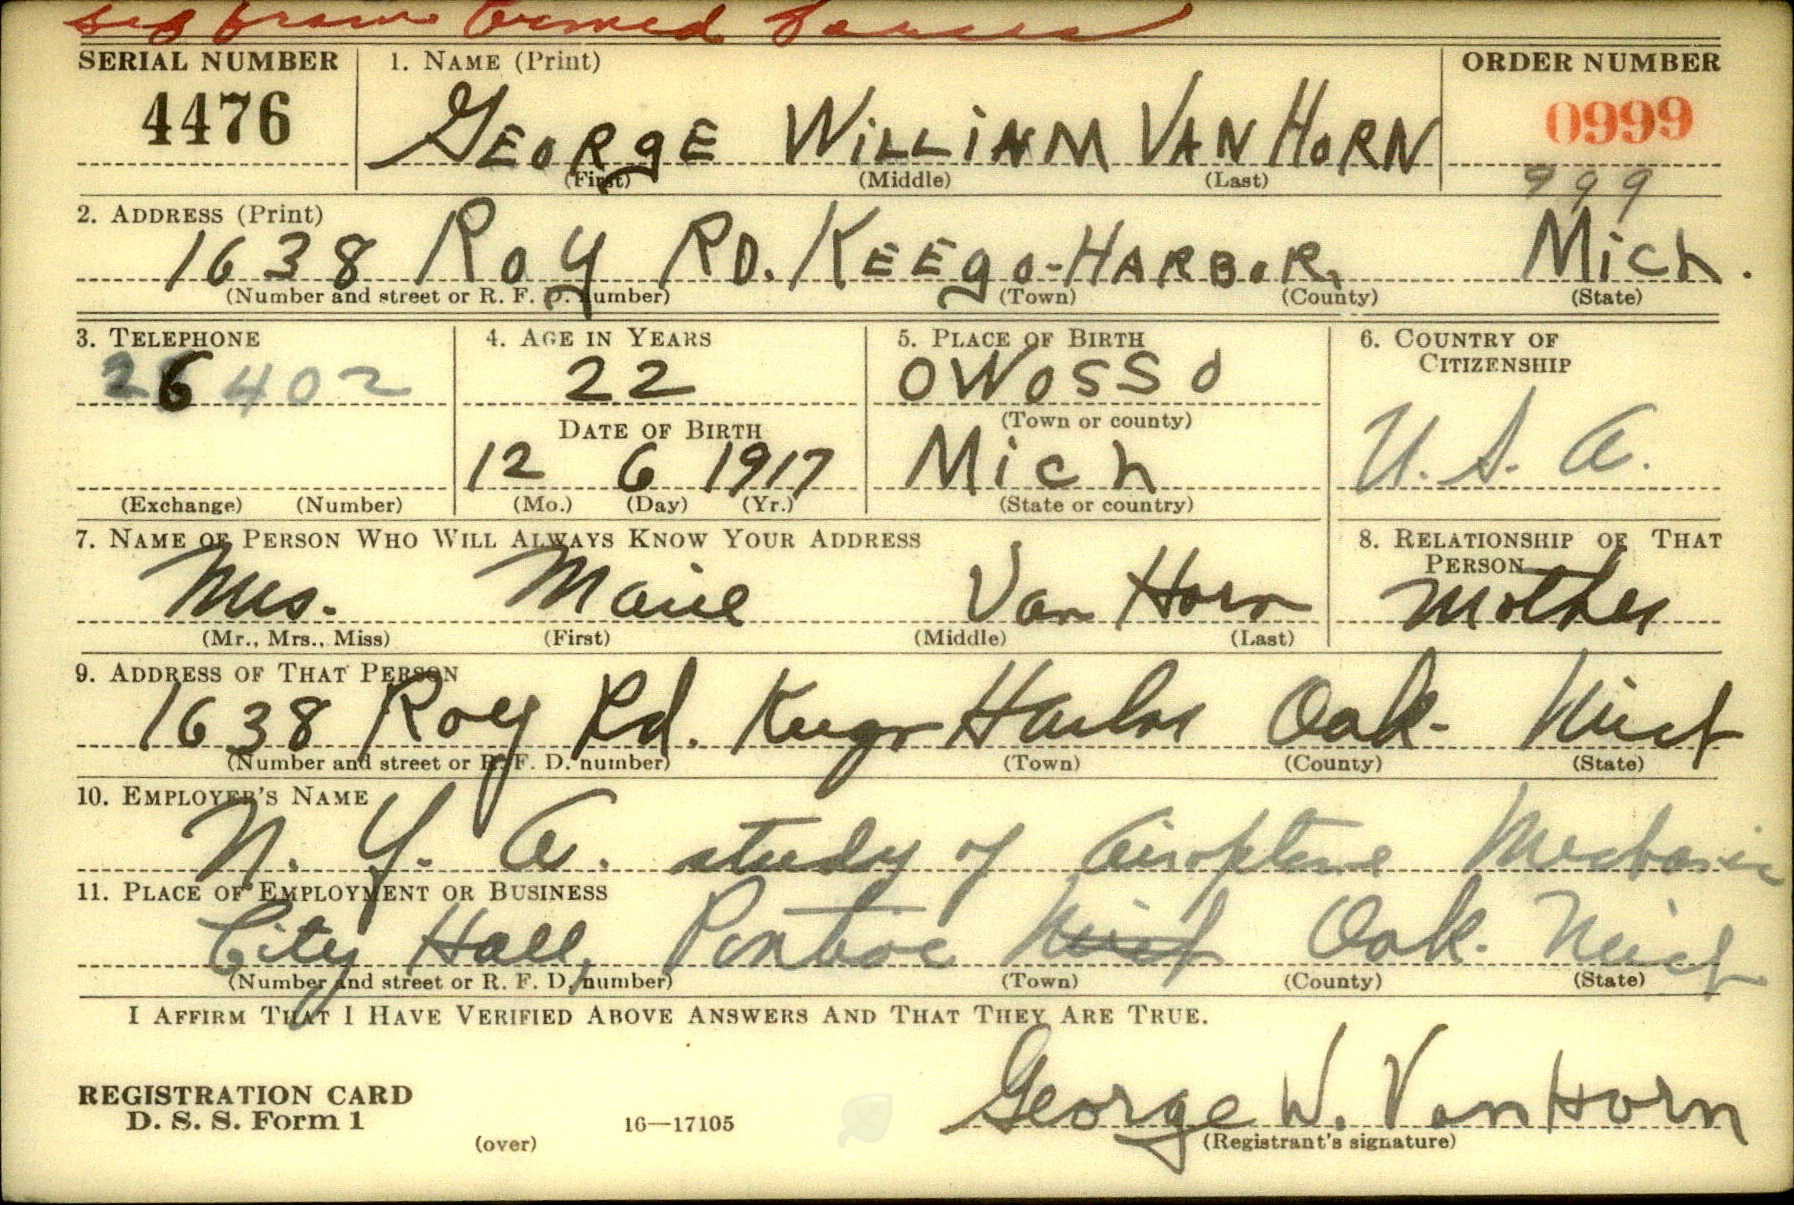 Sep from Armed Forces
SERIAL NUMBER 1. NAME (Print) ORDER NUMBER
4476 GEORGE WILLIAM VAN HORN 0999
(First) (Middle) (Last) 999
2. ADDRESS (Print)
1638 ROY RD. KEEGO-HARBOR, Mich.
(Number and street or R. F. D. number) (Town) (County) (State)
3. TELEPHONE 4. AGE IN YEARS 5. PLACE OF BIRTH 6. COUNTRY OF CITIZENSHIP
26402 22 OWOSSO
DATE OF BIRTH (Town or county)
12 6 1917 Mich U.S.A.
(Exchange) (Number) (Mo.) (Day) (Yr.) (State or country)
7. NAME OF PERSON WHO WILL ALWAYS KNOW YOUR ADDRESS 8. RELATIONSHIP OF THAT PERSON
Mrs. Marie Van Horn Mother
(Mr., Mrs., Miss) (First) (Middle) (Last)
9. ADDRESS OF THAT PERSON
1638 Roy Rd. Keego Harbor Oak. Mich
(Number and street or R. F. D. number) (Town) (County) (State)
10. EMPLOYER'S NAME
N. Y. A. study of Airoplane Mechanic
11. PLACE OF EMPLOYMENT OR BUSINESS
City Hall, Pontiac Mich Oak. Mich
(Number and street or R. F. D. number) (Town) (County) (State)
I AFFIRM THAT I HAVE VERIFIED ABOVE ANSWERS AND THAT THEY ARE TRUE.
REGISTRATION CARD
D. S. S. Form 1 16—17105 George W. Van Horn
(over) (Registrant's signature)